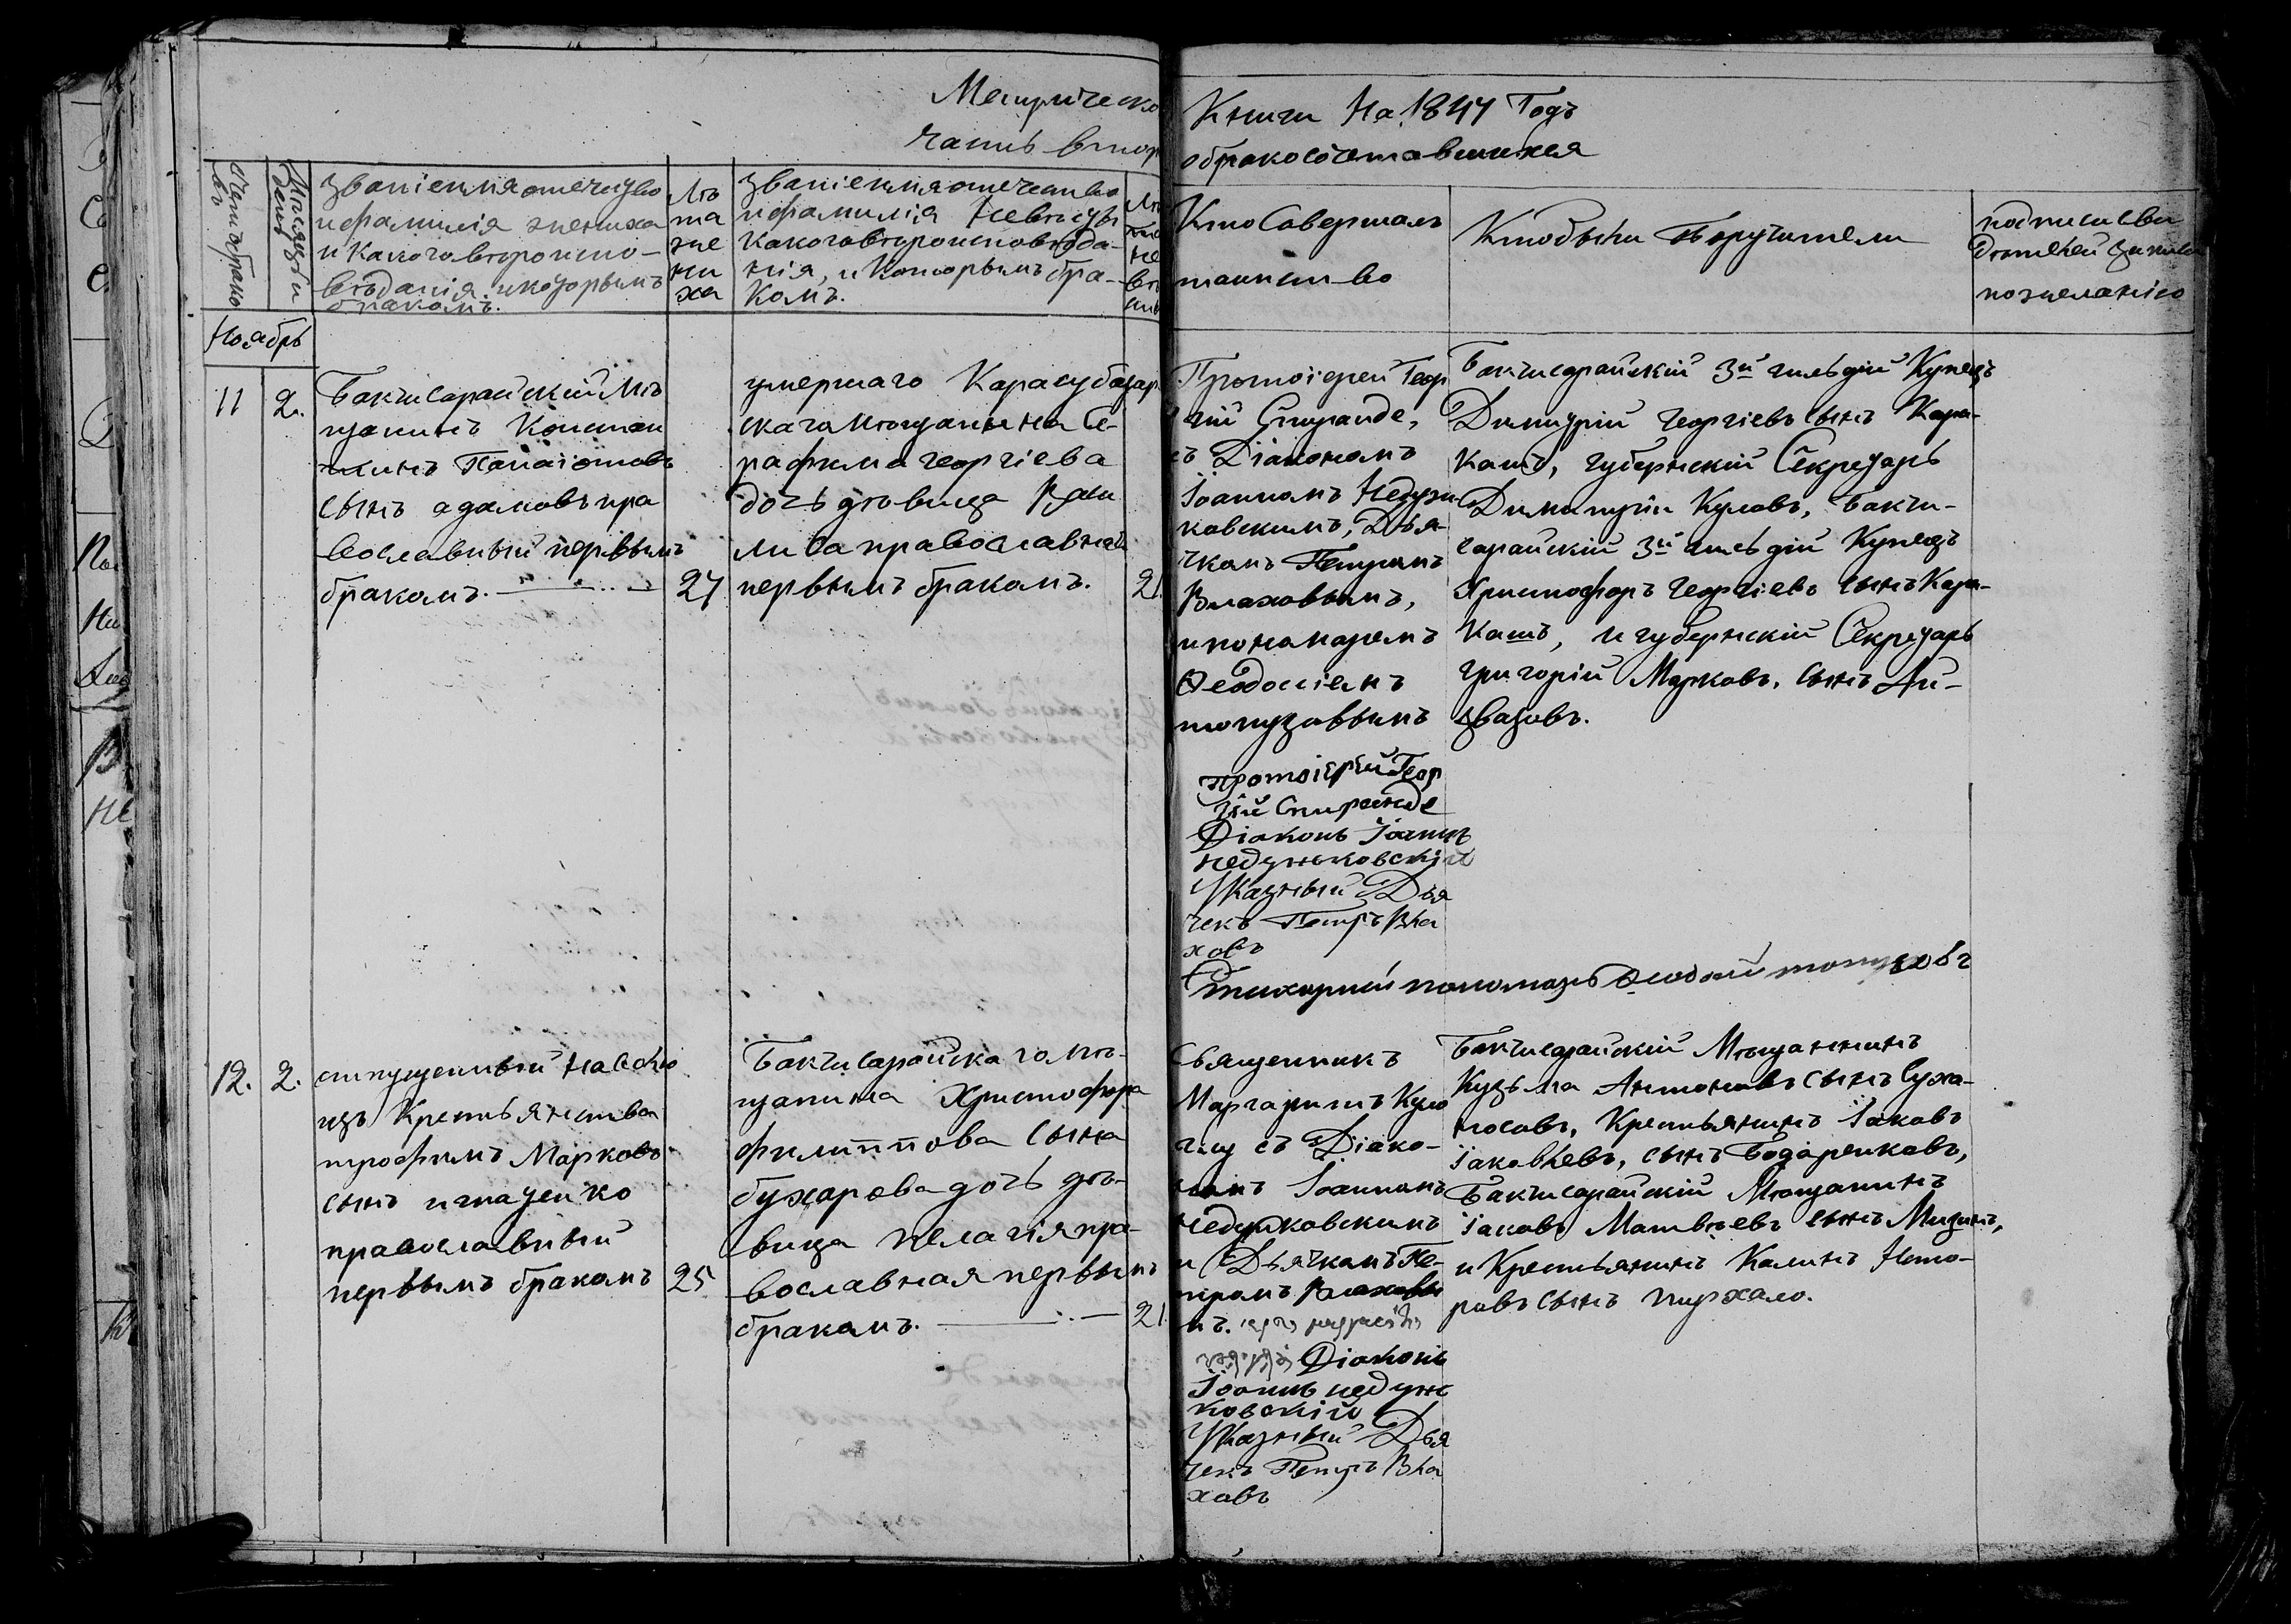 Метрическо
Часть втор
Книги На 1847 Годъ
обракосочетавшихся
Счетъ браковъ
Месяцъ и день
Званіе имя отечество
и фамилія жениха
и какого вѣроиспо-
вѣданія и которымъ
бракомъ.
Лѣ
та
же
ни
ха
Званіе имя отечество
и фамилія Невѣсты
какого вѣроисповѣда-
нія, и Которымъ бра-
комъ.
Лѣ
та
не
вѣ
сты
Кто Совершалъ
таинство
Кто были Поручители
подписи сви
дѣтелей записи
по желанію
Ноябрь
11
2.
Бакчисарайскій Мѣ
щанинъ Констан
тинъ Панаіотовъ
сынъ адамовъ пра
вославный первымъ
бракомъ.
27
умершаго Карасубазар
скаго мѣщанина Се-
рафима георгіева
дочь дѣвица
лиса православная
первымъ бракомъ.
21
Протоіерей Геор
гій Спиранде,
съ Діакономъ
Іоанномъ Недзи
ковскимъ, Дья-
чкомъ Петромъ
Влаховымъ,
и пономаремъ
Ѳеодосіемъ
топузовымъ
Бакчисарайскій 3й гильдій Купецъ
Димитрій Георгіевъ сынъ Кара-
кашъ, губернскій Секретарь
Димитрій Куловъ, Бакчи-
сарайскій 3й гильдій Купецъ
Христофоръ Георгіевъ сынъ Кара-
кашъ, и губернскій Секретарь
Григорій Марковъ, сынъ Ай-
вазовъ.
Протоіерей Геор
гій Спиранде
Діаконъ Іоаннъ
недзиковскій
Указный Дья
чекъ Петръ Вла
ховъ
Стихарный пономарь Ѳеодосій топузовъ
12.
2.
отпущенный На волю
изъ Крестьянства
трофимъ Марковъ
сынъ игнатенко
православный
первымъ бракомъ
25
Бакчисарайскаго мѣ-
щанина Христофора
филиппова сына
бухарева дочь дѣ-
вица пелагія пра-
вославная первымъ
бракомъ.
21
Священникъ
Маргаритъ
съ Діако-
номъ Іоанномъ
Недзиковскимъ
и Дьячкомъ Пе-
тромъ Влаховы
мъ.
Діаконъ
Іоаннъ недзи
ковскій
Указный Дья
чекъ Петръ Вла
ховъ
Бакчисарайскій Мѣщанинъ
Кузьма Антоновъ сынъ Суха-
носовъ, Крестьянинъ Іаковъ
Іаковлевъ, сынъ Бодаренковъ,
Бакчисарайскій Мѣщанинъ
Іаковъ Матвѣевъ сынъ Мизинъ,
и Крестьянинъ Калинъ
сынъ пирхало.